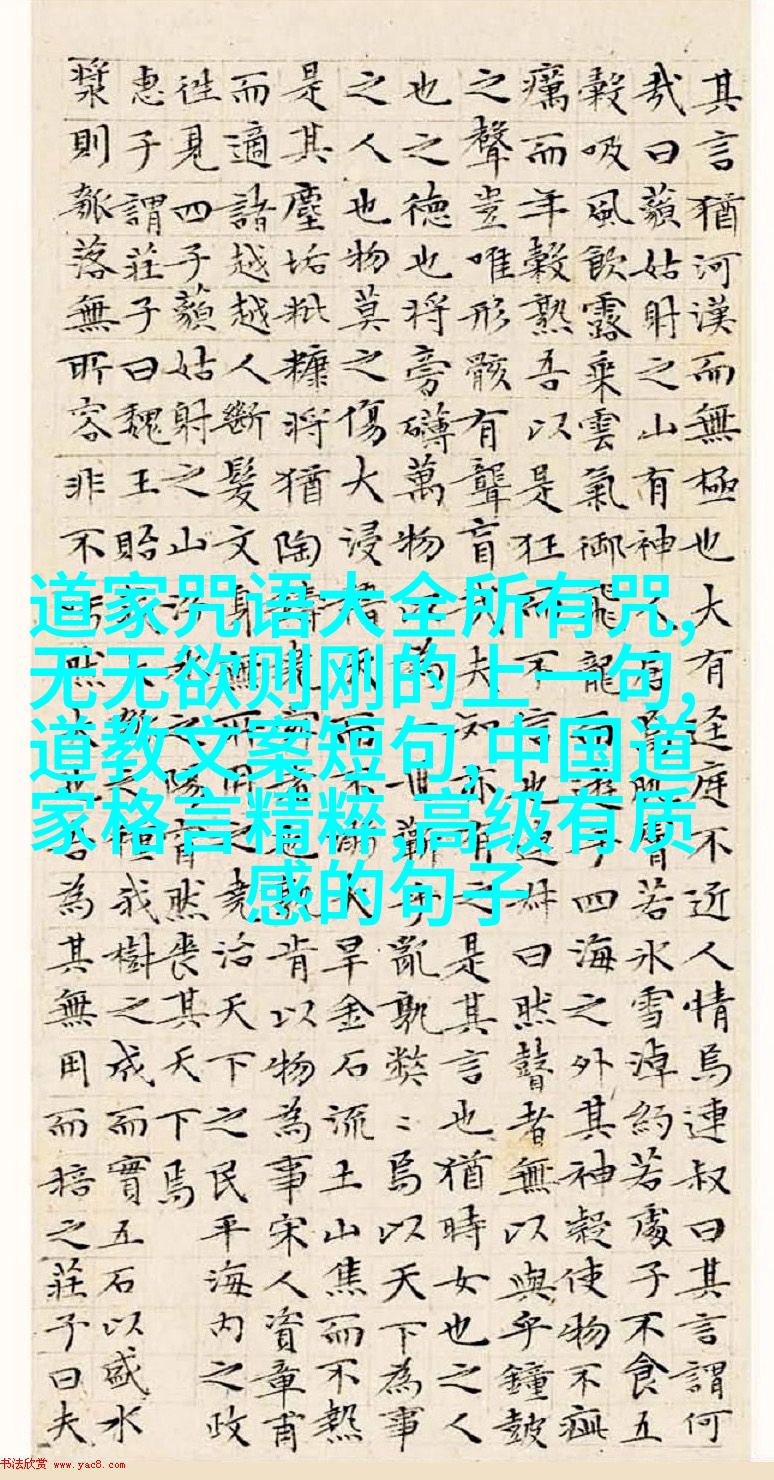 其言猶河漢而無極也大有逕庭不近人情焉連叔曰其言謂何
哉曰藐姑射之山有神人居焉肌膚若冰雪淖約若處子不食五
穀吸風飲露乘雲氣御飛龍而遊乎四海之外其神凝使物不疵
癘而年穀熟吾以是狂而不信也連叔曰然瞽者無以與乎鐘鼓
之聲豈唯形骸有聾盲哉夫知亦有之是其言也猶時女也之人
也之德也將旁礴萬物以為一世蘄乎亂孰弊〻焉以天下為事
之人也物莫之傷大浸而不溺大旱金石流土山焦而不熱
是其塵垢粃糠將猶陶鑄堯者也孰肯以物為事宋人資章甫
而適諸越越人斷髮文身無所用之堯治天下之民平海內之政
往見四子藐姑射之山汾水之陽窅然喪其天下焉
惠子謂莊子曰魏王貽我大之種我樹之成而實五石以盛水
漿則瓠落無所容非不然大也吾為其無用而掊之莊子曰夫
道家咒语大全所有咒,
无无欲则刚的上一句,
道教文案短句,中国道
家格言精粹,高级有质
感的句子
书法欣赏 www.yac8.com